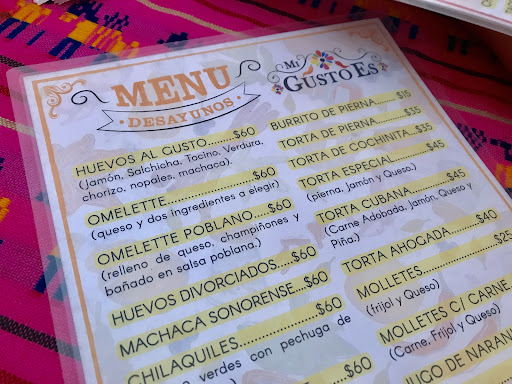 MENU
DESAYUNOS
Mi
GUSTO ES
HUEVOS AL GUSTO......$60
(Jamón, Salchicha, Tocino, Verdura,
chorizo, nopales, machaca).
OMELETTE....................$60
(queso y dos ingredientes a elegir)
OMELETTE POBLANO....$60
(relleno de queso, champiñones y
bañado en salsa poblana.)
HUEVOS DIVORCIADOS...$60
MACHACA SONORENSE...$60
CHILAQUILES................$60
verdes con pechuga de
$60
BURRITO DE PIERNA........$15
TORTA DE PIERNA..........$35
TORTA DE COCHINITA...$35
TORTA ESPECIAL...........$45
(pierna, Jamón y Queso.)
TORTA CUBANA............$45
(Carne Adobada, Jamón, Queso y
Piña.)
TORTA AHOGADA........$40
MOLLETES..................$25
(frijol y Queso)
MOLLETES C/ CARNE
(Carne, Frijol y Queso)
JUGO DE